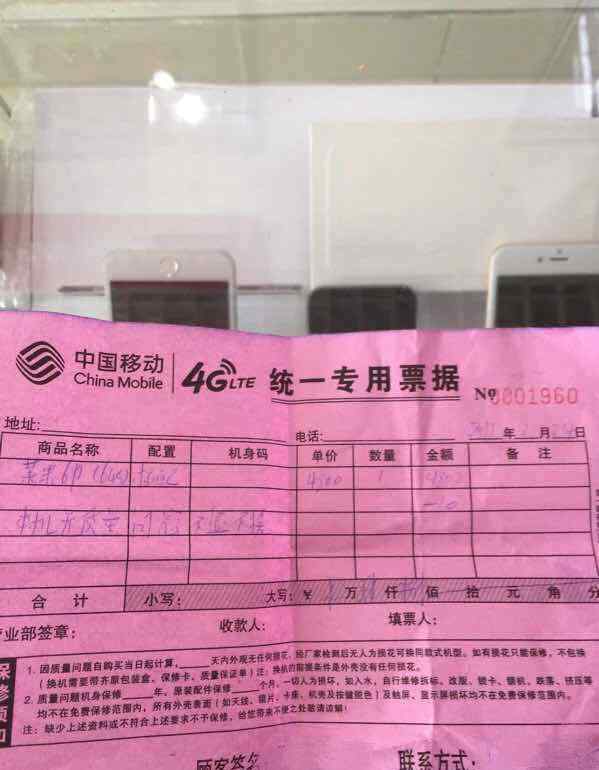 中国移动
China Mobile
4G LTE
统一专用票据
No 0801960
地址:
电话:
年 月 日
商品名称 配置 机身码 单价 数量 金额 备注
4500 1
合计 小写: 大写: ¥ 万 仟 佰 拾 元 角 分
业部签章: 收款人: 填票人:
1. 因质量问题自购买当日起计算, 天内外观无任何损花, 经厂家检测后无人为损花可换同款式机型。如有损花只能保修, 不包换
(换机需要带齐原包装盒、保修卡、质量保证单) 注: 换机的前提条件是外壳没有任何损花。
2. 质量问题机身保修 年, 原装配件保修 个月, 一切人为损坏, 如入水, 自行维修拆标、改版、锁卡、锁机、跌落、挤压等
均不在免费保修范围内, 所有外壳表面 (如天线、镜片、卡座、机壳及按键胶色) 及触屏、显示屏损坏均不在免费保修范围内。
注: 缺少上述资料或不符合上述要求不予保修, 给您带来不便之处敬请谅解!
保修须知
顾客签名
联系方式: